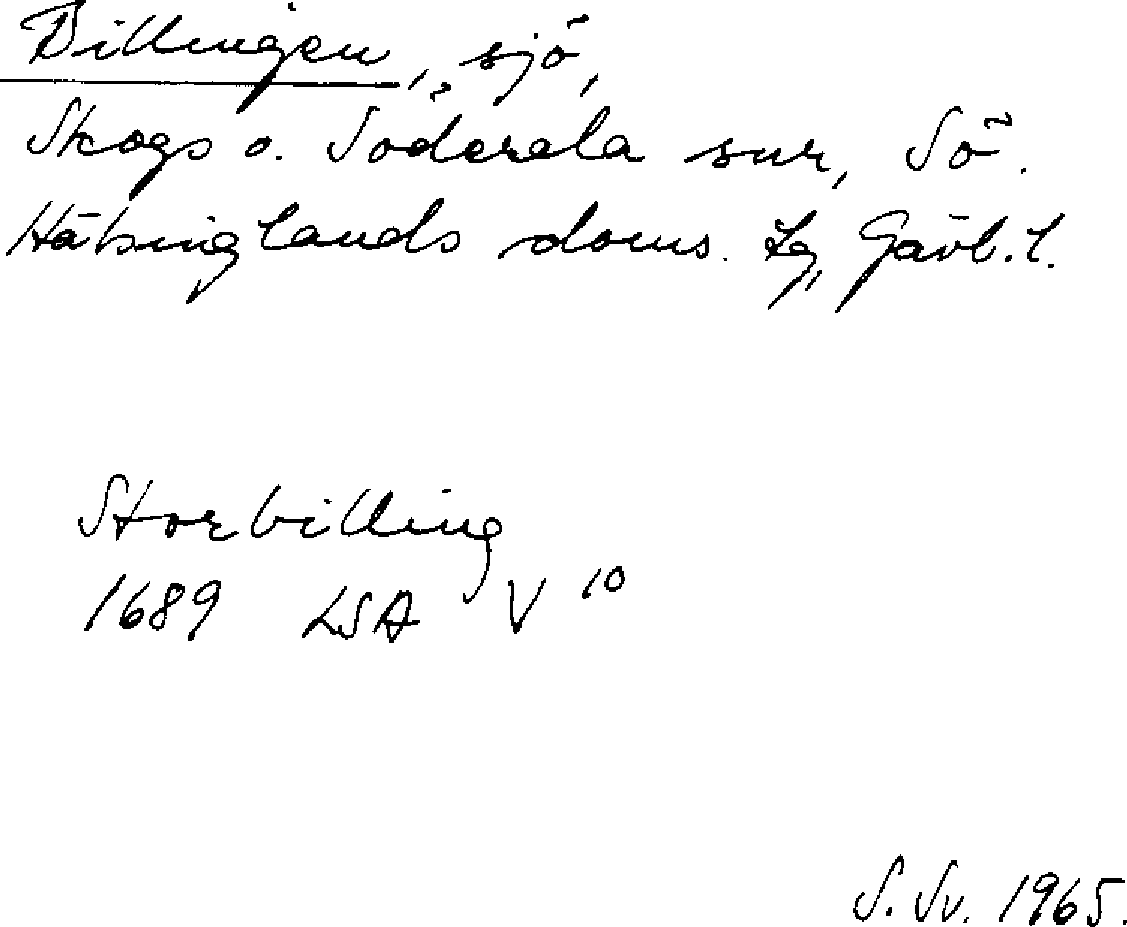 Billingen, sjö,
Skogs o. Söderala snr, Sö.
Hälsinglands doms. tg, Gävl. l.
Storbilling
1689 LSA V 10
S. Sv. 1965.